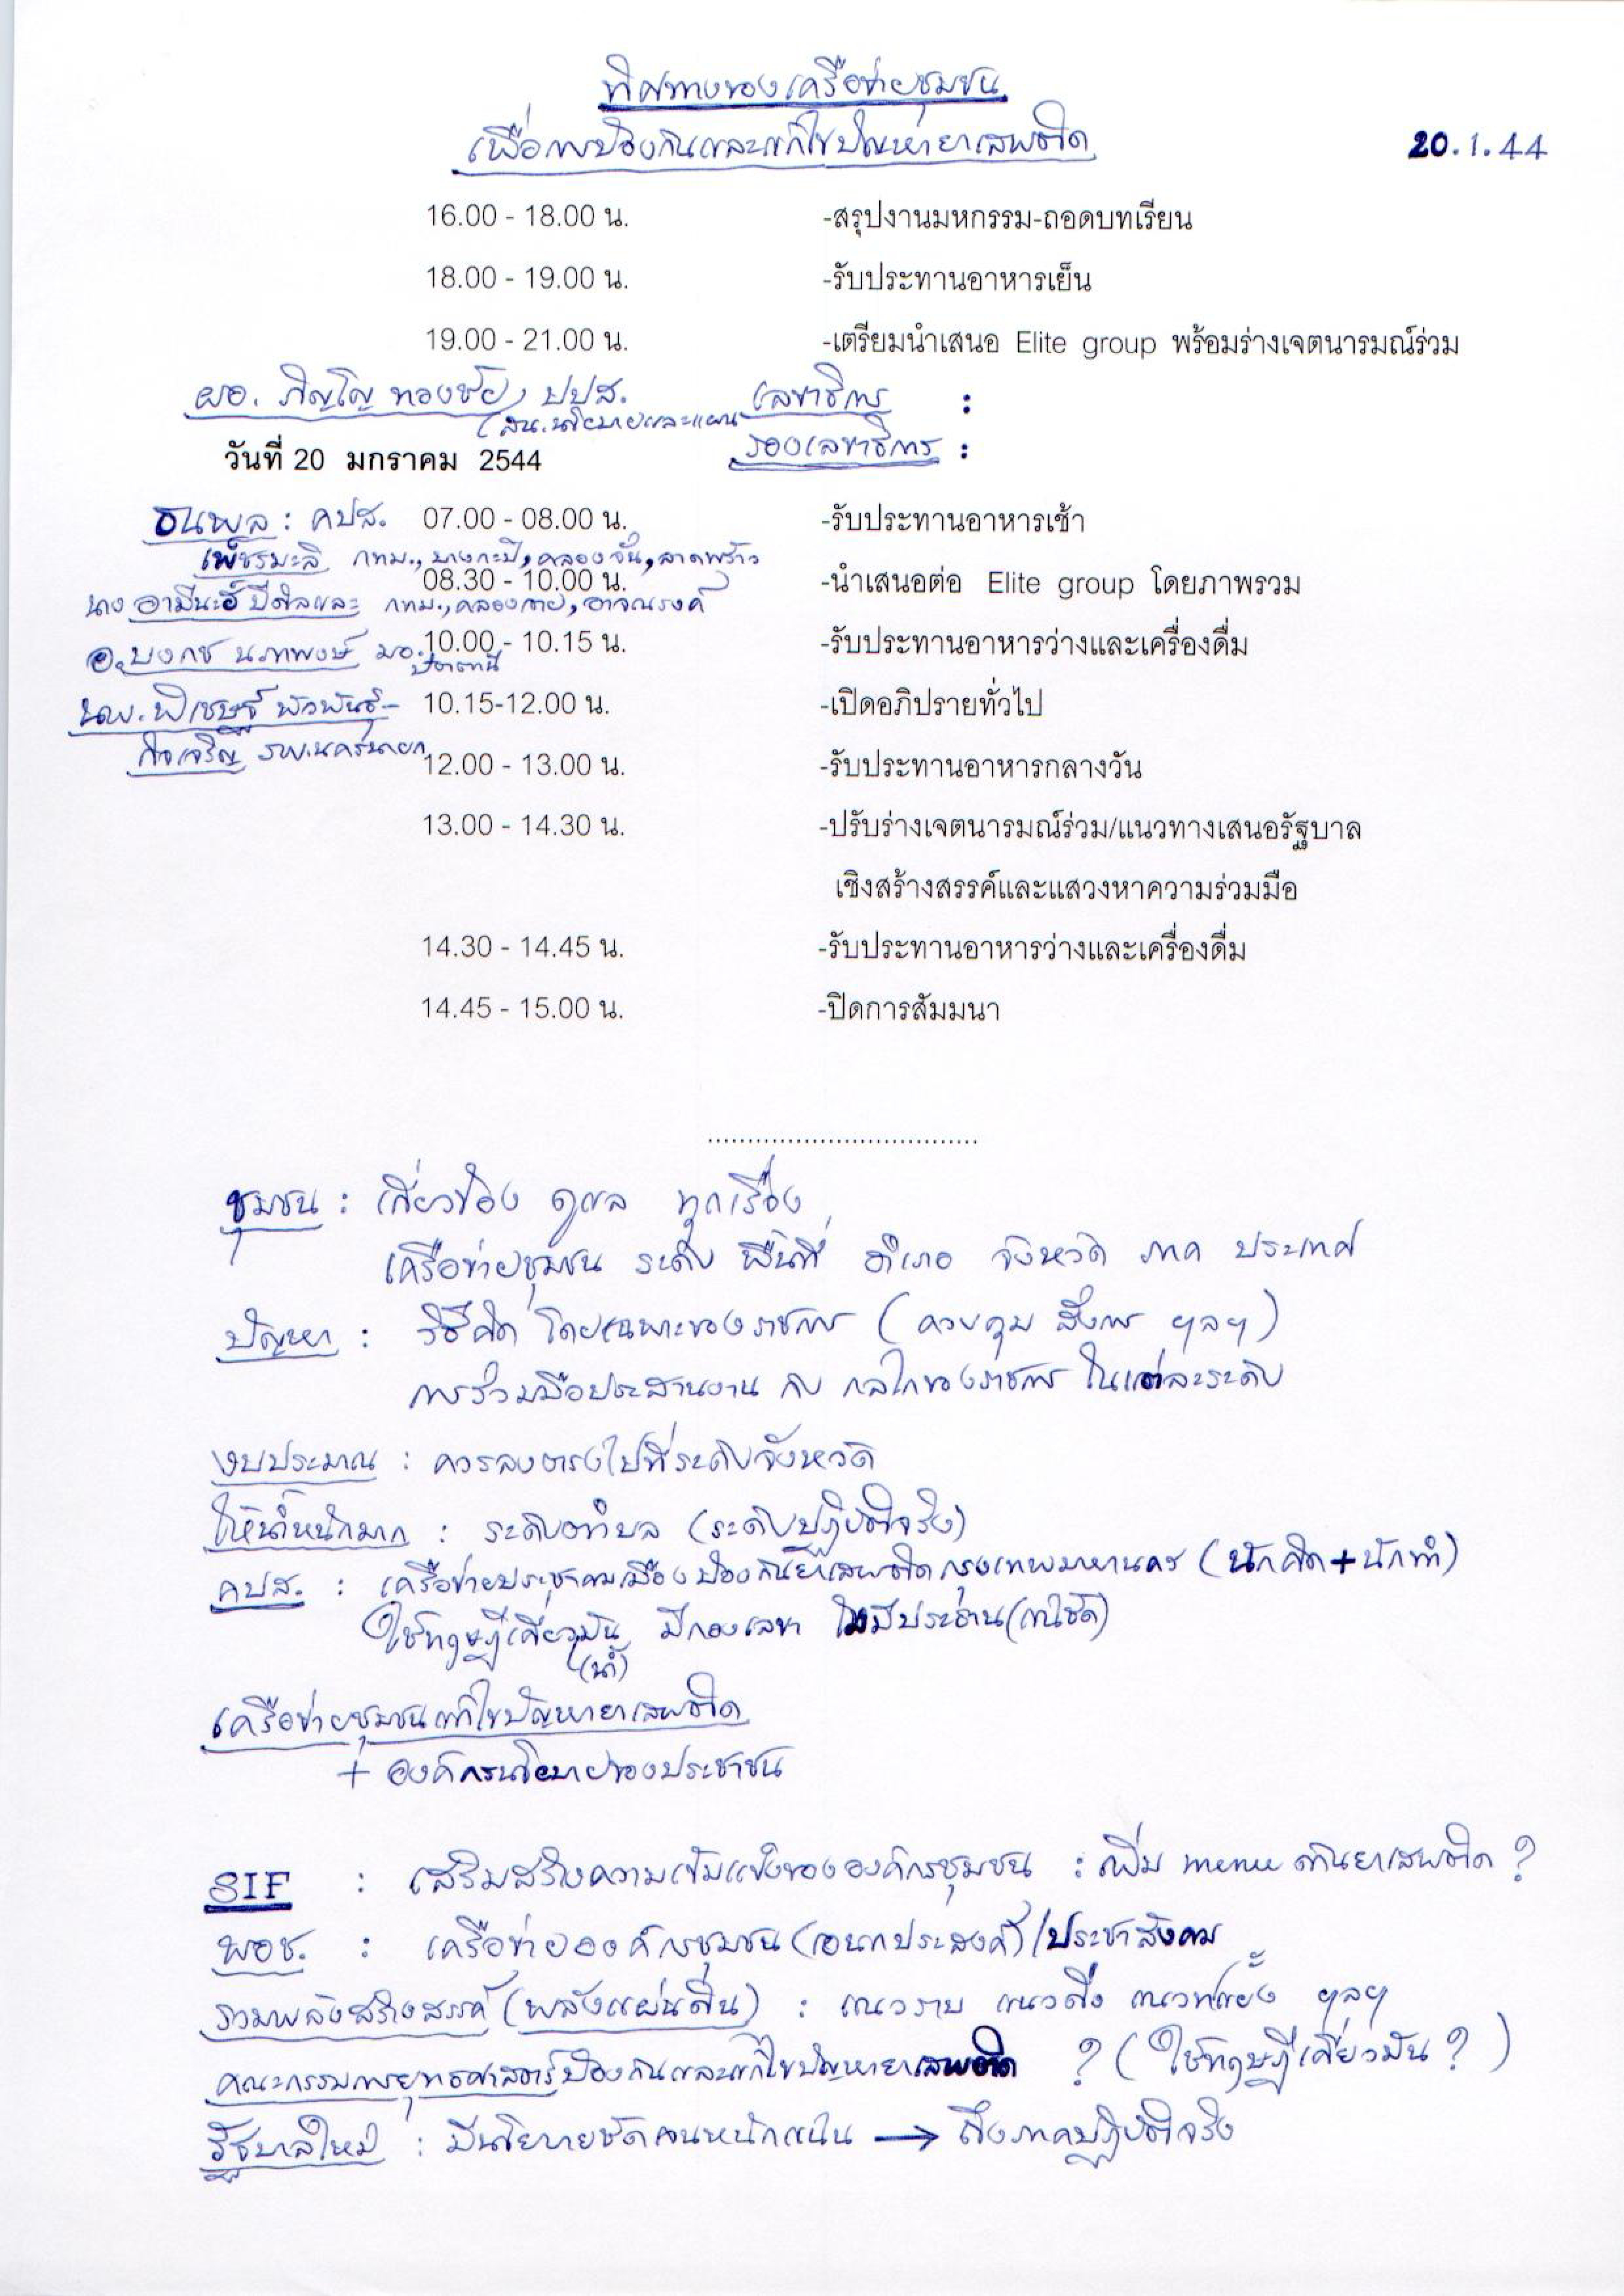 ทิศทางของเครือข่ายชุมชน
เพื่อการป้องกันและแก้ไขปัญหายาเสพติด
20.1.44
16.00 - 18.00 น. -สรุปงานมหกรรม-ถอดบทเรียน
18.00 - 19.00 น. -รับประทานอาหารเย็น
19.00 - 21.00 น. -เตรียมนำเสนอ Elite group พร้อมร่างเจตนารมณ์ร่วม
ผอ. ภิญโญ ทองชัย, ปปส. เลขาธิการ :
(สน.นโยบายและแผน รองเลขาธิการ :
วันที่ 20 มกราคม 2544
ธนพล : คปส. 07.00 - 08.00 น. -รับประทานอาหารเช้า
เพ็ชรมะลิ กทม., บางกะปิ, คลองจั่น, ลาดพร้าว
08.30 - 10.00 น. -นำเสนอต่อ Elite group โดยภาพรวม
นาง อามีนะฮ์ กทม., คลองเตย, อาจณรงค์
อ. บงกช นภาพงษ์ มอ. 10.00 - 10.15 น. -รับประทานอาหารว่างและเครื่องดื่ม
ปัตตานี
นพ. พิเชษฐ์ พัวพันธ์- 10.15-12.00 น. -เปิดอภิปรายทั่วไป
กิจเจริญ รพ.นครนายก
12.00 - 13.00 น. -รับประทานอาหารกลางวัน
13.00 - 14.30 น. -ปรับร่างเจตนารมณ์ร่วม/แนวทางเสนอรัฐบาล
เชิงสร้างสรรค์และแสวงหาความร่วมมือ
14.30 - 14.45 น. -รับประทานอาหารว่างและเครื่องดื่ม
14.45 - 15.00 น. -ปิดการสัมมนา
..................................
ชุมชน : เกี่ยวข้อง ดูแล ทุกเรื่อง
เครือข่ายชุมชน ระดับ พื้นที่ อำเภอ จังหวัด ภาค ประเทศ
ปัญหา : วิธีคิด โดยเฉพาะของราชการ (ควบคุม สั่งการ ฯลฯ)
การร่วมมือประสานงาน กับ กลไกของราชการ ในแต่ละระดับ
งบประมาณ : ควรลงตรงไปที่ระดับจังหวัด
ให้น้ำหนักมาก : ระดับตำบล (ระดับปฏิบัติจริง)
คปส. : เครือข่ายประชาคมเมืองป้องกันยาเสพติดกรุงเทพมหานคร (นักคิด+นักทำ)
ใช้ทฤษฎีเคี่ยวมัน มีกองเลขา ไม่มีประธาน
(น้ำ)
เครือข่ายชุมชนแก้ไขปัญหายาเสพติด
+ องค์กรนโยบายของประชาชน
SIF : เสริมสร้างความเข้มแข็งขององค์กรชุมชน : เพิ่ม menu ด้านยาเสพติด ?
พอช. : เครือข่ายองค์กรชุมชน (เอนกประสงค์) / ประชาสังคม
รวมพลังสร้างสรรค์ (พลังแผ่นดิน) : แนวราบ แนวดิ่ง แนวทแยง ฯลฯ
คณะกรรมการยุทธศาสตร์ป้องกันและแก้ไขปัญหายาเสพติด ? (ใช้ทฤษฎีเคี่ยวมัน ?)
รัฐบาลใหม่ : มีนโยบายชัดเจนหนักแน่น → ถึงภาคปฏิบัติจริง